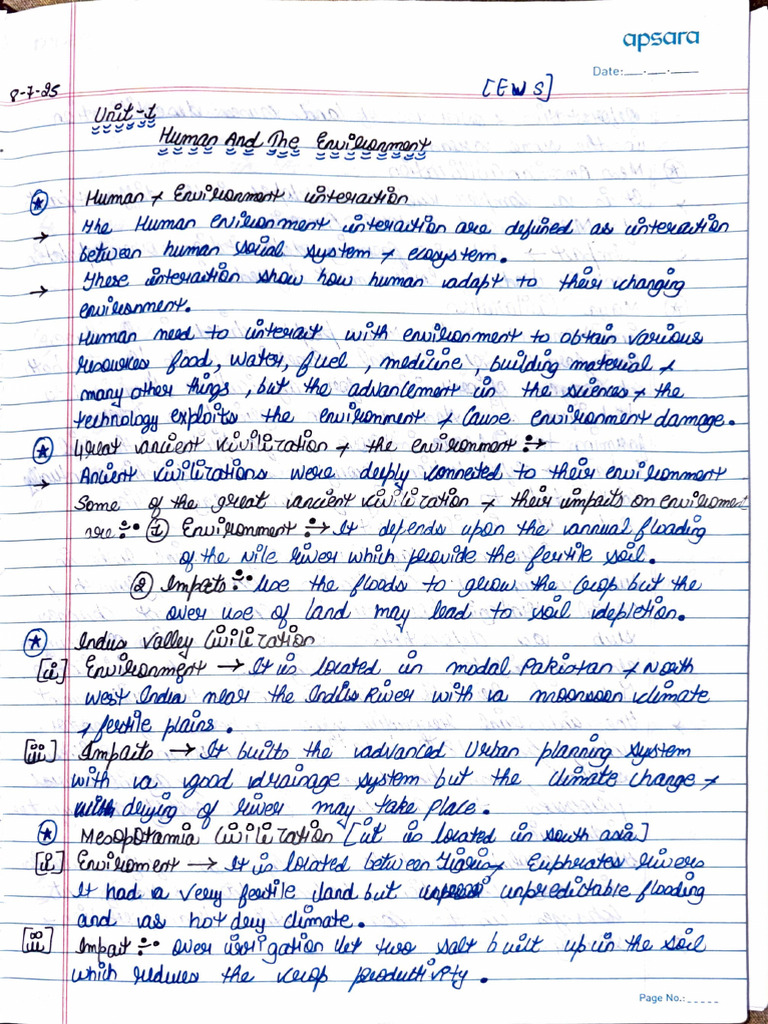 apsara
Date:
8-7-25
[EWS]
Unit-1
Human And The Environment
Human & Environment interaction
→ The Human environment interaction are defined as interaction
between human social system & ecosystem.
→ These interaction show how human adapt to their changing
environment.
Human need to interact with environment to obtain various
resources food, water, fuel, medicine, building material &
many other things, but the advancement in the sciences & the
technology exploits the environment & Cause environment damage.
Great ancient civilization & the environment :→
→ Ancient civilizations were deeply connected to their environment
Some of the great ancient civilization & their impacts on enviroment
are :- ① Environment :→ It depends upon the annual flooding
of the Nile river which provide the fertile soil.
② Impacts :- Use the floods to grow the crop but the
over use of land may lead to soil depletion.
Indus Valley Civilization
[i] Environment → It is located in modal Pakistan & North
west India near the Indus River with a moonsoon climate
& fertile plains.
[ii] Impacts → It builts the advanced Urban planning system
with a good drainage system but the climate change &
drying of river may take place.
Mesopotamia Civilization [it is located in south asia]
[i] Enviroment → It is located between Tigris & Euphrates rivers
It had a very fertile land but unpredictable flooding
and as hot dry climate.
[ii] Impact :- over irrigation let two salt built up in the soil
which reduces the crop productivity.
Page No.: